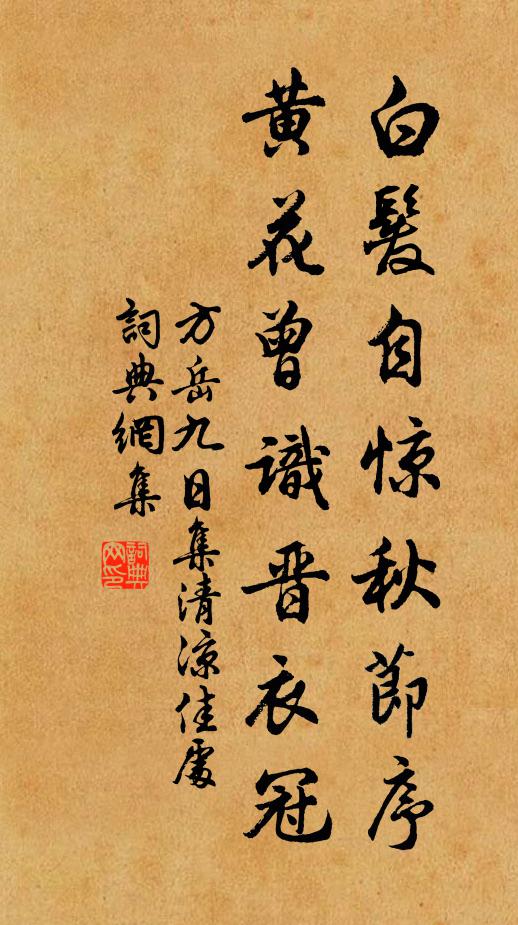 白髮自惊秋節序
黄花曾識晋衣冠
方岳九日集清涼佳處
詞典網集
詞典網印